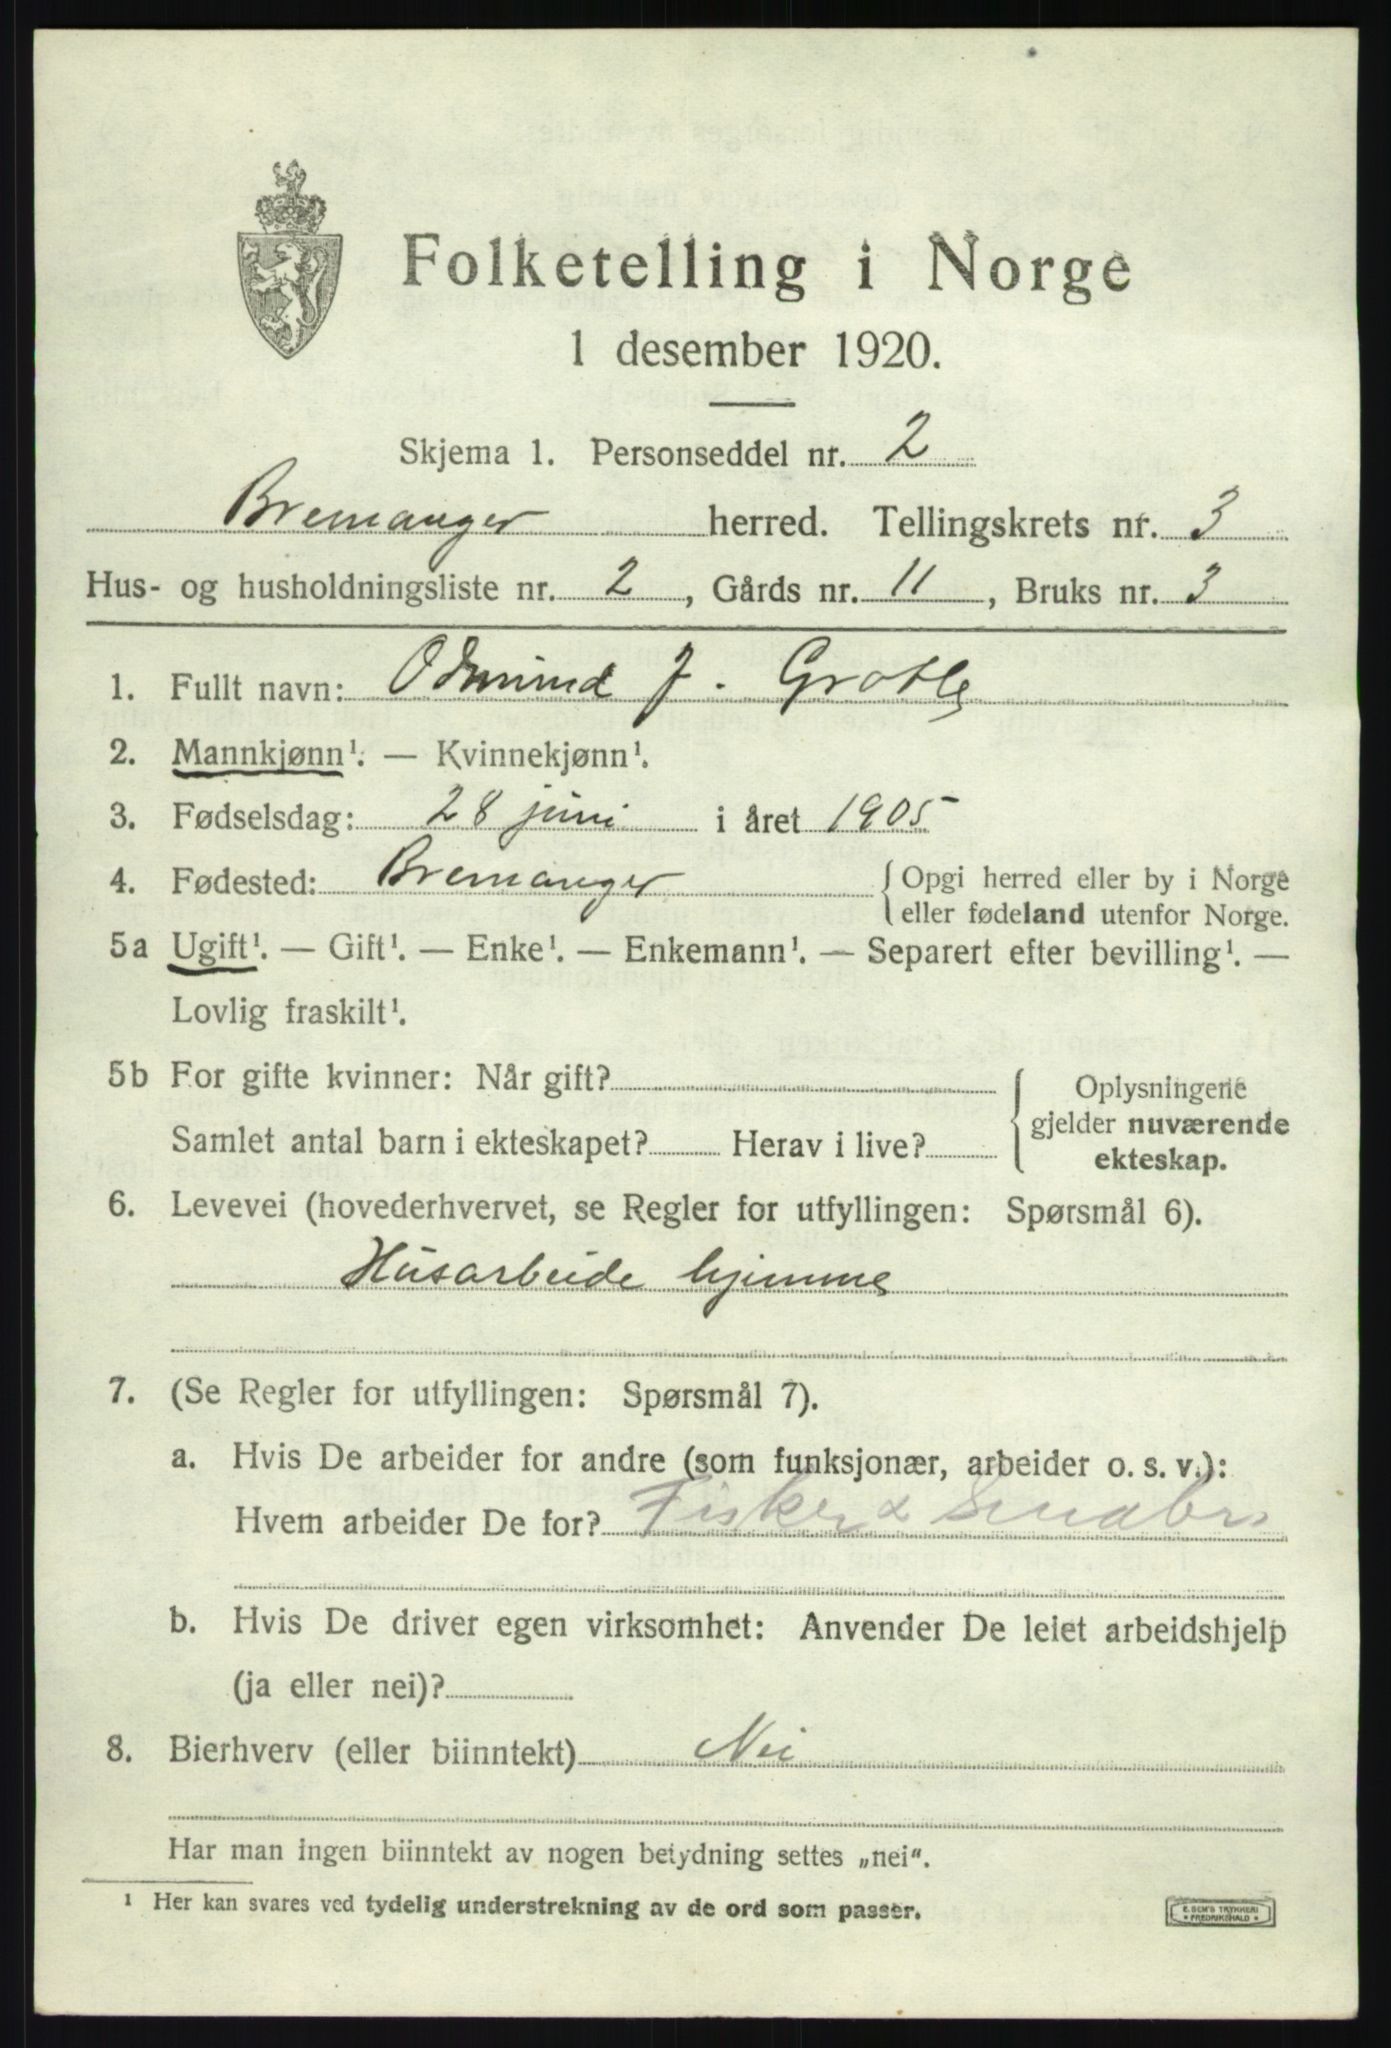 Folketelling i Norge
1 desember 1920.
Skjema 1. Personseddel nr. 2
Bremanger herred. Tellingskrets nr. 3
Hus- og husholdningsliste nr. 2, Gårds nr. 11, Bruks nr. 3
1. Fullt navn: Odmund J. Grotle
2. Mannkjønn¹. — Kvinnekjønn¹.
3. Fødselsdag: 28 juni i året 1905
4. Fødested: Bremanger { Opgi herred eller by i Norge
eller fødeland utenfor Norge.
5a Ugift¹. — Gift¹. — Enke¹. — Enkemann¹. — Separert efter bevilling¹. —
Lovlig fraskilt¹.
5b For gifte kvinner: Når gift?
Samlet antal barn i ekteskapet? Herav i live?
{ Oplysningene
gjelder nuværende
ekteskap.
6. Levevei (hovederhvervet, se Regler for utfyllingen: Spørsmål 6).
Husarbeide hjemme
7. (Se Regler for utfyllingen: Spørsmål 7).
a. Hvis De arbeider for andre (som funksjonær, arbeider o. s. v.):
Hvem arbeider De for? Fisker & Smabr.
b. Hvis De driver egen virksomhet: Anvender De leiet arbeidshjelp
(ja eller nei)?
8. Bierhverv (eller biinntekt) Nei
Har man ingen biinntekt av nogen betydning settes „nei“.
¹ Her kan svares ved tydelig understrekning av de ord som passer.
E. SEM'S TRYKKERI
FREDRIKSHALD